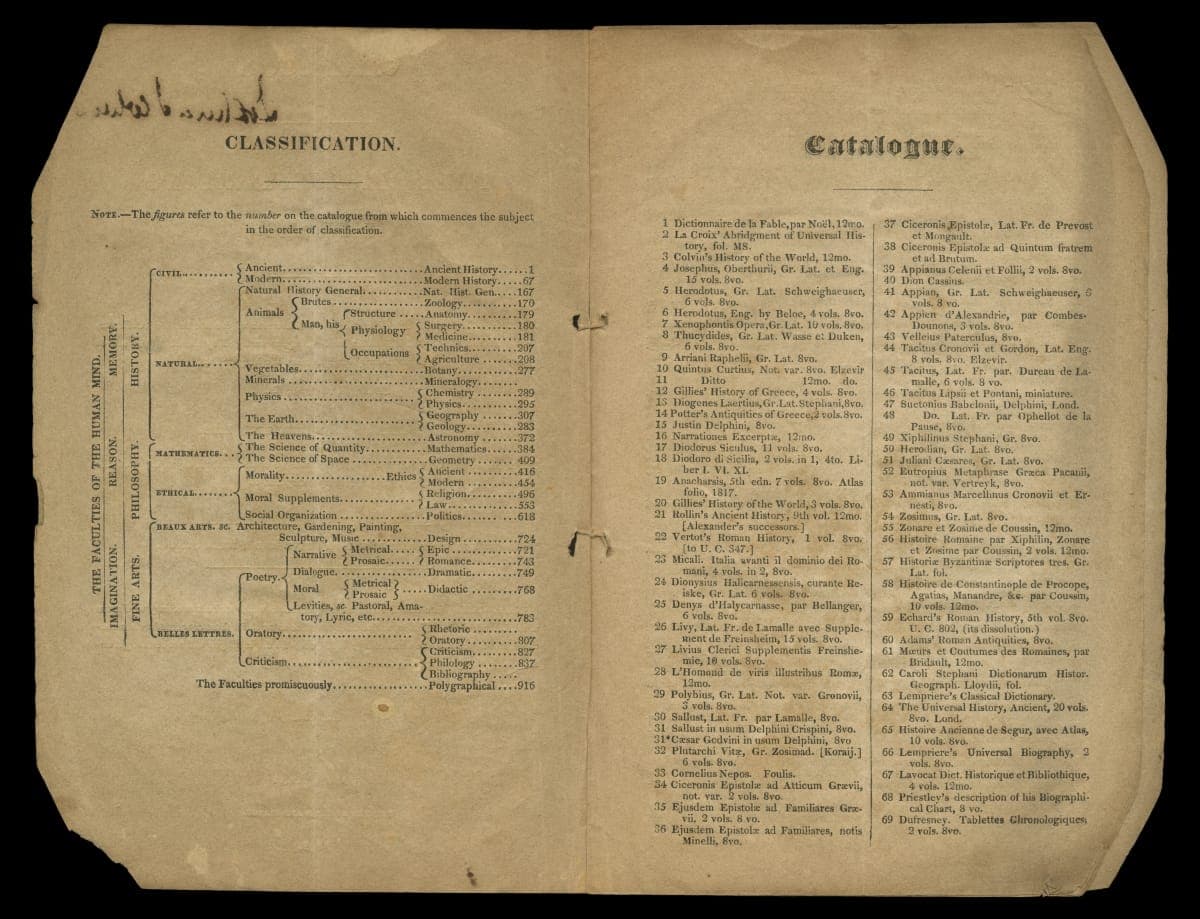 CLASSIFICATION.
NOTE.—The figures refer to the number on the catalogue from which commences the subject
in the order of classification.
THE FACULTIES OF THE HUMAN MIND.
MEMORY.
HISTORY.
REASON.
PHILOSOPHY.
IMAGINATION.
FINE ARTS.
CIVIL........... Ancient........................Ancient History......1
Modern........................Modern History....67
NATURAL....... Natural History General...........Nat. Hist. Gen.....167
Animals Brutes..................Zoology...........170
Man, his Structure .....Anatomy...........179
Physiology Surgery...........180
Medicine..........181
Occupations Technics..........207
Agriculture .......208
Vegetables........................Botany............277
Minerals ..........................Mineralogy........
Physics............................ Chemistry ........289
Physics...........295
The Earth......................... Geography ........307
Geology...........283
The Heavens......................Astronomy ........372
MATHEMATICS... The Science of Quantity...........Mathematics.......384
The Science of Space .............Geometry ........ 409
ETHICAL........ Morality....................Ethics Ancient ..........416
Modern ..........454
Moral Supplements................ Religion..........496
Law..............553
Social Organization ...............Politics...........618
BEAUX ARTS. sc. Architecture, Gardening, Painting,
Sculpture, Music .............Design ...........724
BELLES LETTRES. Poetry. Narrative Metrical..... Epic .............721
Prosaic..... Romance..........743
Dialogue...................Dramatic..........749
Moral Metrical Prosaic .....Didactic .........768
Levities, sc. Pastoral, Ama-
tory, Lyric, etc..............................783
Oratory........................... Rhetoric .........
Oratory ..........807
Criticism.......................... Criticism.........827
Philology ........837
Bibliography .....
The Faculties promiscuously..................Polygraphical ....916
Catalogue.
1 Dictionnaire de la Fable, par Noël, 12mo.
2 La Croix' Abridgment of Universal His-
tory, fol. MS.
3 Colvin's History of the World, 12mo.
4 Josephus, Oberthurii, Gr. Lat. et Eng.
15 vols. 8vo.
5 Herodotus, Gr. Lat. Schweighaeuser,
6 vols. 8vo.
6 Herodotus, Eng. by Beloe, 4 vols. 8vo.
7 Xenophontis Opera, Gr. Lat. 10 vols. 8vo.
8 Thucydides, Gr. Lat. Wasse et Duken,
6 vols. 8vo.
9 Arriani Raphelii, Gr. Lat. 8vo.
10 Quintus Curtius, Not. var. 8vo. Elzevir
11 Ditto 12mo. do.
12 Gillies' History of Greece, 4 vols. 8vo.
13 Diogenes Laertius, Gr. Lat. Stephani, 8vo.
14 Potter's Antiquities of Greece, 2 vols. 8vo.
15 Justin Delphini, 8vo.
16 Narrationes Excerptæ, 12mo.
17 Diodorus Siculus, 11 vols. 8vo.
18 Diodoro di Sicilia, 2 vols. in 1, 4to. Li-
ber I. VI. XI.
19 Anacharsis, 5th edn. 7 vols. 8vo. Atlas
folio, 1817.
20 Gillies' History of the World, 3 vols. 8vo.
21 Rollin's Ancient History, 9th vol. 12mo.
[Alexander's successors.]
22 Vertot's Roman History, 1 vol. 8vo.
[to U. C. 347.]
23 Micali. Italia avanti il dominio dei Ro-
mani, 4 vols. in 2, 8vo.
24 Dionysius Halicarnessensis, curante Re-
iske, Gr. Lat. 6 vols. 8vo.
25 Denys d'Halycarnasse, par Bellanger,
6 vols. 8vo.
26 Livy, Lat. Fr. de Lamalle avec Supple-
ment de Freinsheim, 15 vols. 8vo.
27 Livius Clerici Supplementis Freinshe-
mic, 10 vols. 8vo.
28 L'Homond de viris illustribus Romæ,
12mo.
29 Polybius, Gr. Lat. Not. var. Gronovii,
3 vols. 8vo.
30 Sallust, Lat. Fr. par Lamalle, 8vo.
31 Sallust in usum Delphini Crispini, 8vo.
31*Cæsar Godvini in usum Delphini, 8vo
32 Plutarchi Vitæ, Gr. Zosimad. [Koraij.]
6 vols. 8vo.
33 Cornelius Nepos. Foulis.
34 Ciceronis Epistolæ ad Atticum Grævii,
not. var. 2 vols. 8vo.
35 Ejusdem Epistolæ ad Familiares Græ-
vii, 2 vols. 8 vo.
36 Ejusdem Epistolæ ad Familiares, notis
Minelli, 8vo.
37 Ciceronis Epistolæ, Lat. Fr. de Prevost
et Mongault.
38 Ciceronis Epistolæ ad Quintum fratrem
et ad Brutum.
39 Appianus Celenii et Follii, 2 vols. 8vo.
40 Dion Cassius.
41 Appian, Gr. Lat. Schweighaeuser, 6
vols. 8 vo.
42 Appien d'Alexandrie, par Combes-
Dounons, 3 vols. 8vo.
43 Velleius Paterculus, 8vo.
44 Tacitus Cronovii et Gordon, Lat. Eng.
8 vols. 8vo. Elzevir.
45 Tacitus, Lat. Fr. par. Dureau de La-
malle, 6 vols. 8 vo.
46 Tacitus Lipsii et Pontani, miniature.
47 Suetonius Babelonii, Delphini, Lond.
48 Do. Lat. Fr. par Ophellot de la
Pause, 8vo.
49 Xiphilinus Stephani, Gr. 8vo.
50 Herodian, Gr. Lat. 8vo.
51 Juliani Cæsares, Gr. Lat. 8vo.
52 Eutropius Metaphrase Græca Pacanii,
not. var. Vertreyk, 8vo.
53 Ammianus Marcellinus Cronovii et Er-
nesti, 8vo.
54 Zosimus, Gr. Lat. 8vo.
55 Zonare et Zosime de Coussin, 12mo.
56 Histoire Romaine par Xiphilin, Zonare
et Zosime par Coussin, 2 vols. 12mo.
57 Historiæ Byzantinæ Scriptores tres. Gr.
Lat. fol.
58 Histoire de Constantinople de Procope,
Agatias, Manandre, &c. par Coussin,
10 vols. 12mo.
59 Echard's Roman History, 5th vol. 8vo.
U. C. 802, (its dissolution.)
60 Adams' Roman Antiquities, 8vo.
61 Mœurs et Coutumes des Romaines, par
Bridault, 12mo.
62 Caroli Stephani Dictionarum Histor.
Geograph. Lloydii, fol.
63 Lempriere's Classical Dictionary.
64 The Universal History, Ancient, 20 vols.
8vo. Lond.
65 Histoire Ancienne de Segur, avec Atlas,
10 vols. 8vo.
66 Lempriere's Universal Biography, 2
vols. 8vo.
67 Lavocat Dict. Historique et Bibliothique,
4 vols. 12mo.
68 Priestley's description of his Biographi-
cal Chart, 8 vo.
69 Dufresney. Tablettes Chronologiques,
2 vols. 8vo.